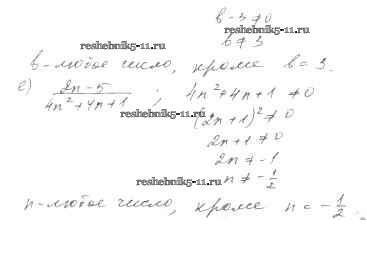 b - 3 ≠ 0
reshebnik5-11.ru
reshebnik5-11.ru
b ≠ 3
b - любое число, кроме b = 3.
e) (2n - 5)/(4n² + 4n + 1) ; 4n² + 4n + 1 ≠ 0
reshebnik5-11.ru
(2n + 1)² ≠ 0
2n + 1 ≠ 0
2n ≠ -1
reshebnik5-11.ru
n ≠ -1/2
n - любое число, кроме n = -1/2.